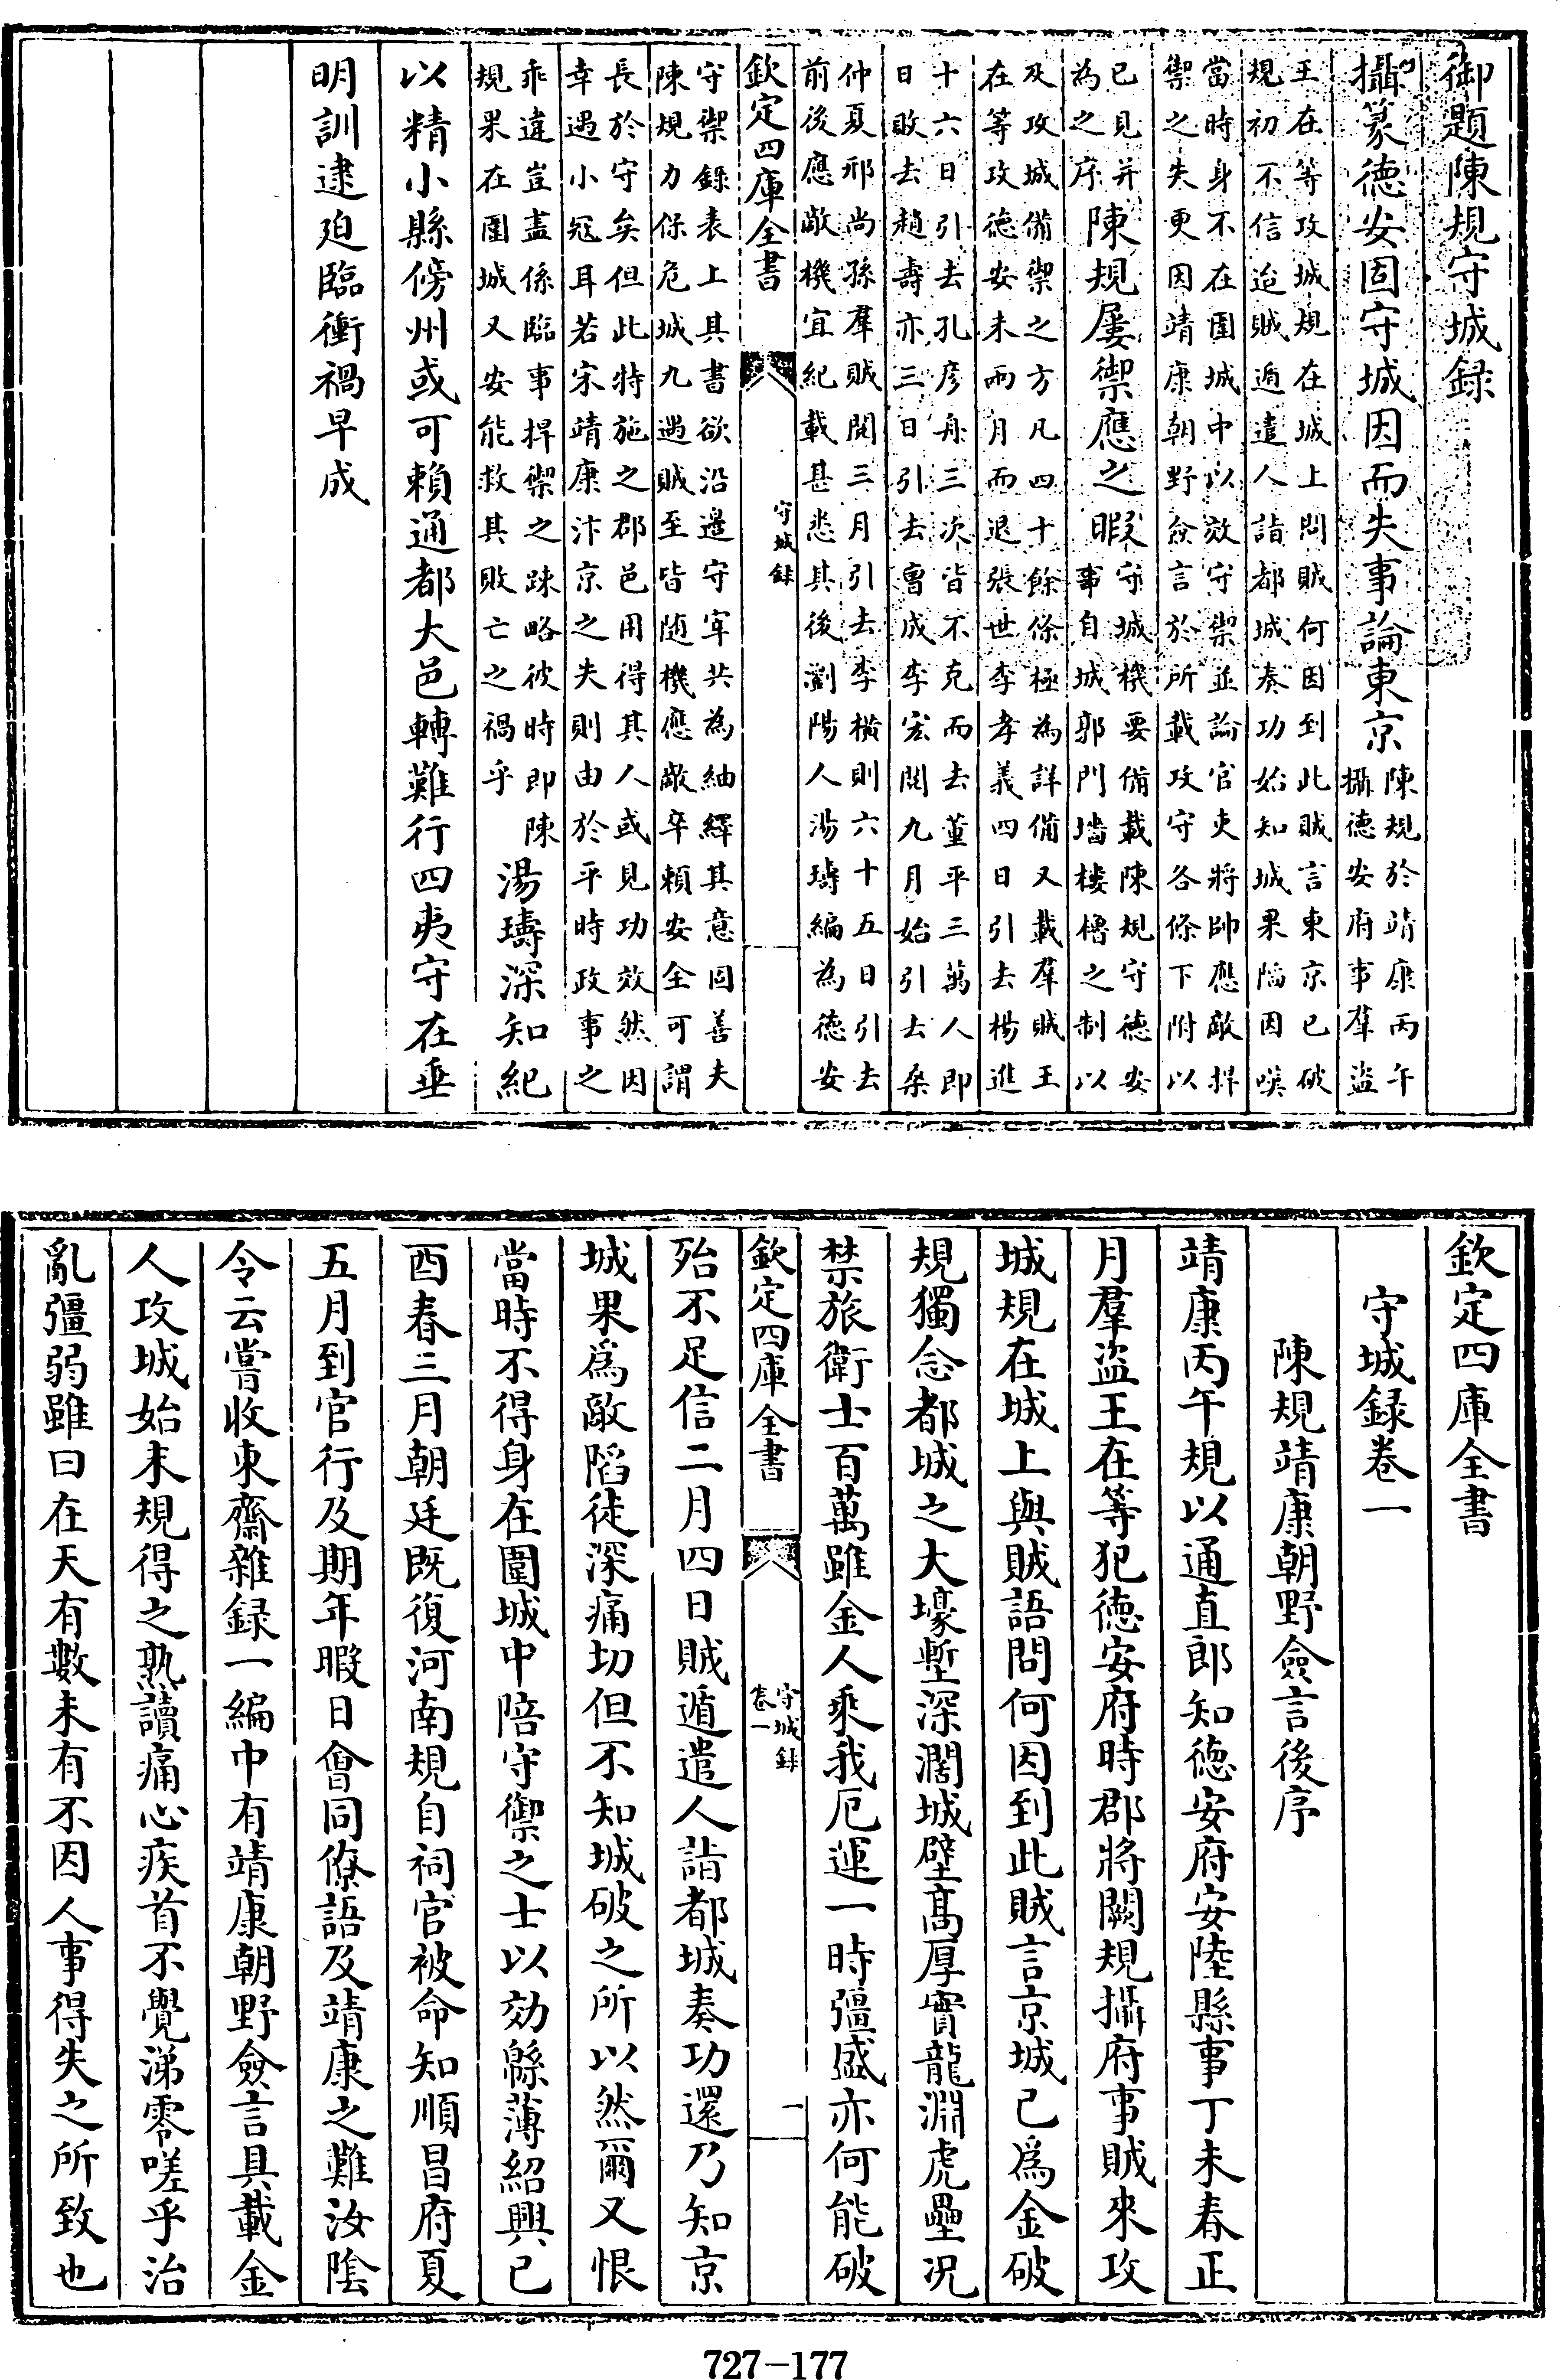 御題陳規守城録
攝篆徳安固守城因而失事論東京
陳規於靖康丙午
攝徳安府事羣盜
王在等攻城規在城上問賊何因到此賊言東京已破
規初不信迨賊遁遣人詣都城奏功始知城果陷因嘆
當時身不在圍城中以效守禦並論官吏將帥應敵捍
禦之失更因靖康朝野僉言於所載攻守各條下附以
已見并
為之序
陳規屢禦應之暇
守城機要備載陳規守德安
事自城郭門墻樓櫓之制以
及攻城備禦之方凡四十餘條極為詳備又載羣賊王
在等攻徳安未兩月而退張世李孝義四日引去楊進
十六日引去孔彦舟三次皆不克而去董平三萬人即
日敗去趙壽亦三日引去曹成李宏閱九月始引去桑
仲夏邢尚孫羣賊閱三月引去李横則六十五日引去
前後應敵機宜紀載甚悉其後瀏陽人湯璹編為徳安
欽定四庫全書
守城録
守禦錄表上其書欲沿邊守宰共為紬繹其意固善夫
陳規力保危城九遇賊至皆随機應敵卒賴安全可謂
長於守矣但此特施之郡邑用得其人或見功效然因
幸遇小冦耳若宋靖康汴京之失則由於平時政事之
乖違豈盡係臨事捍禦之踈略彼時即陳
規果在圍城又安能救其敗亡之禍乎
湯璹深知紀
以精小縣傍州或可賴通都大邑轉難行四夷守在垂
明訓逮廹臨衝禍早成
欽定四庫全書
守城録卷一
陳規靖康朝野僉言後序
靖康丙午規以通直郎知徳安府安陸縣事丁未春正
月羣盜王在等犯徳安府時郡將闕規攝府事賊來攻
城規在城上與賊語問何因到此賊言京城已爲金破
規獨念都城之大壕塹深濶城壁髙厚實龍淵虎壘况
禁旅衛士百萬雖金人乘我厄運一時彊盛亦何能破
欽定四庫全書
守城録
卷一
一
殆不足信二月四日賊遁遣人詣都城奏功還乃知京
城果爲敵陷徒深痛切但不知城破之所以然爾又恨
當時不得身在圍城中陪守禦之士以効緜薄紹興己
酉春三月朝廷既復河南規自祠官被命知順昌府夏
五月到官行及期年暇日㑹同僚語及靖康之難汝陰
令云嘗收東齋雜録一編中有靖康朝野僉言具載金
人攻城始末規得之熟讀痛心疾首不覺涕零嗟乎治
亂彊弱雖曰在天有數未有不因人事得失之所致也
727-177